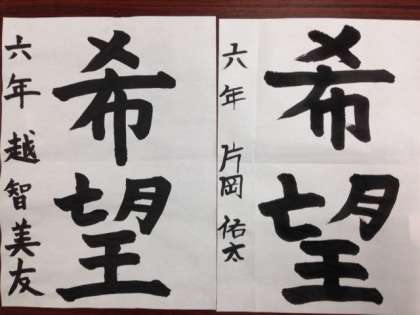 希望
六年 越智美友
希望
六年 片岡佑太